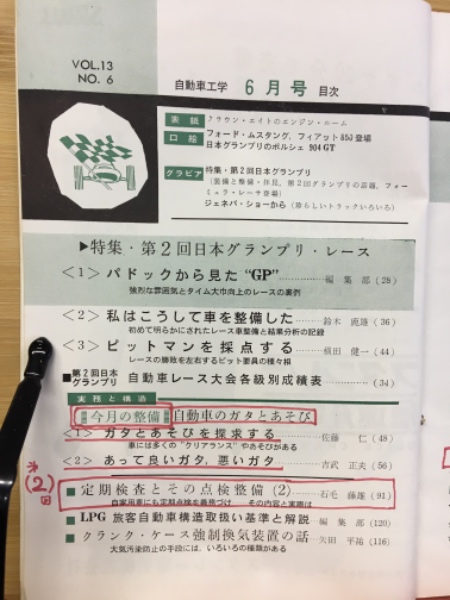 VOL.13
NO. 6
自動車工学 6月号 目次
表紙 クラウン・エイトのエンジン・ルーム
口絵 フォード・ムスタング，フィアット850登場
日本グランプリのポルシェ 904 GT
グラビア 特集・第2回日本グランプリ
（装備と整備・拝見，第2回グランプリの話題，フォー
ミュラ・レーサ登場）
ジェネバ・ショーから（珍らしいトラックいろいろ）
▶特集・第2回日本グランプリ・レース
<1> パドックから見た “GP” 編集部 (28)
強烈な雰囲気とタイム大巾向上のレースの裏側
<2> 私はこうして車を整備した 鈴木 (36)
初めて明らかにされたレース車整備と結果分析の記録
<3> ピットマンを採点する 横田 健一 (44)
レースの勝敗を左右するピット要員の種々相
■第2回日本グランプリ 自動車レース大会各級別成績表 (34)
実務と構造
今月の整備 自動車のガタとあそび
<1> ガタとあそびを探求する 佐藤 仁 (48)
車には多くの“クリアランス”やあそびがある
<2> あって良いガタ，悪いガタ 吉武 正夫 (56)
(2)
■定期検査とその点検整備 (2) 石毛 藤雄 (91)
自家用車にも定期点検を義務づけ その内容と実際は
■LPG 旅客自動車構造取扱い基準と解説 編集部 (120)
■クランク・ケース強制換気装置の話 矢田 平祐 (116)
大気汚染防止の手段には，いろいろの種類がある